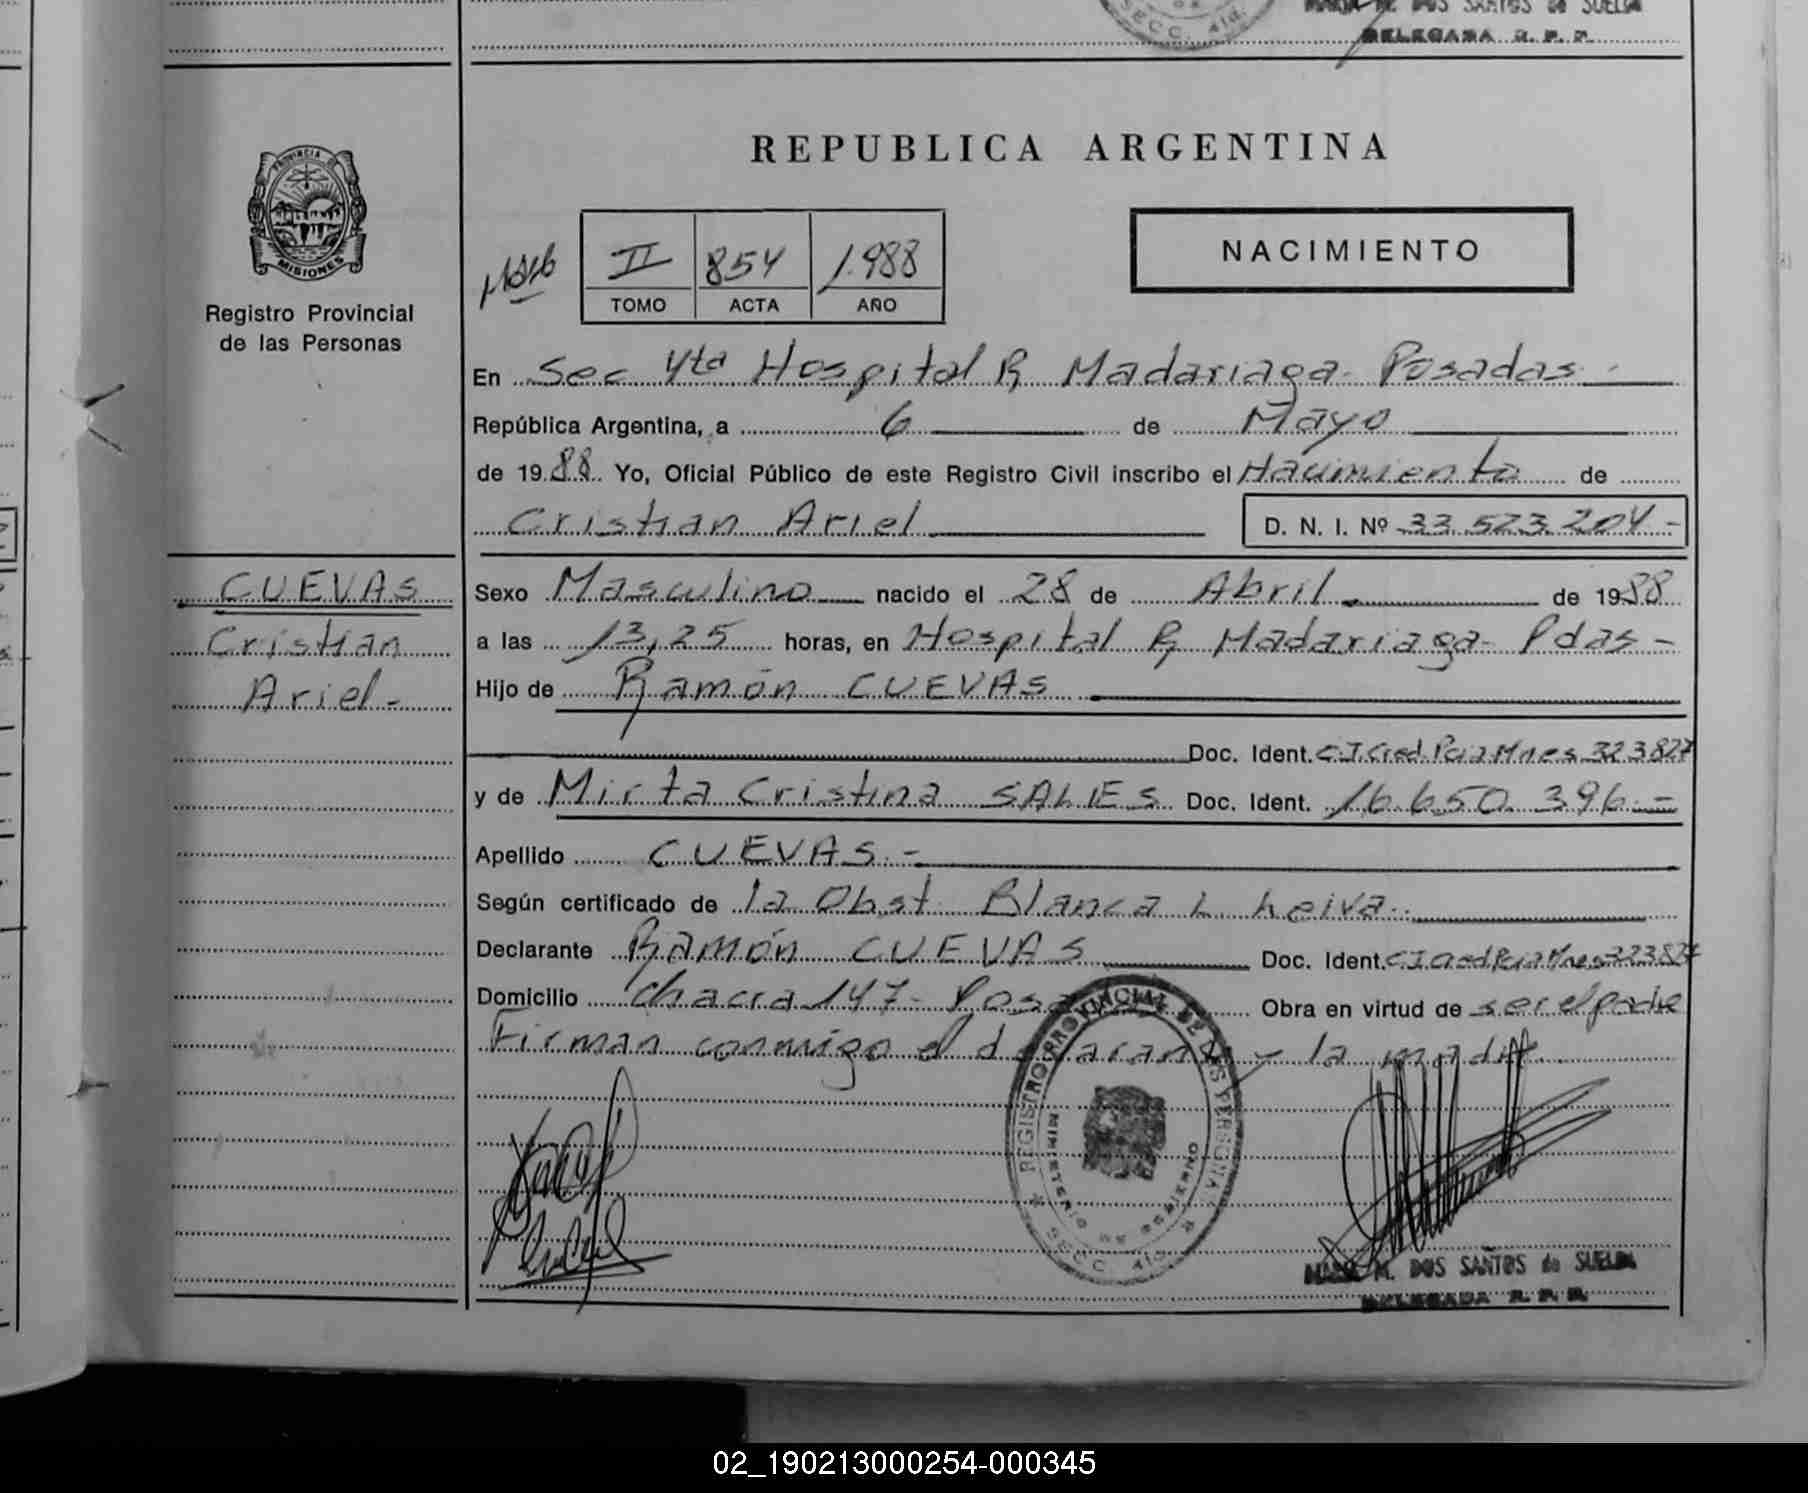 MARIA M. DOS SANTOS de SUELDA
DELEGADA R. P. P.
SECC. 4ta.
REPUBLICA ARGENTINA
PROVINCIA DE
MISIONES
Registro Provincial
de las Personas
II 854 1.988
TOMO ACTA AÑO
NACIMIENTO
En Sec 4ta Hospital R Madariaga - Posadas -
República Argentina, a 6 de Mayo
de 1988 Yo, Oficial Público de este Registro Civil inscribo el Nacimiento de
Cristian Ariel D. N. I. Nº 33.523.204 -
CUEVAS
Cristian
Ariel -
Sexo Masculino nacido el 28 de Abril de 1988
a las 13,25 horas, en Hospital R Madariaga - Pdas -
Hijo de Ramón CUEVAS
Doc. Ident. C.I. Cred. Pcia Mnes 323827
y de Mirta Cristina SALES Doc. Ident. 16.650.396 -
Apellido CUEVAS -
Según certificado de la Obst. Blanca L Leiva
Declarante Ramón CUEVAS Doc. Ident. C I Cred Pcia Mnes 323827
Domicilio Chacra 147 - Obra en virtud de ser el padre
Firman conmigo el y la madre
REGISTRO PROVINCIAL DE LAS PERSONAS
MINISTERIO DE GOBIERNO
SECC. 4ta
MARIA M. DOS SANTOS de SUELDA
DELEGADA R. P. P.
02_190213000254-000345